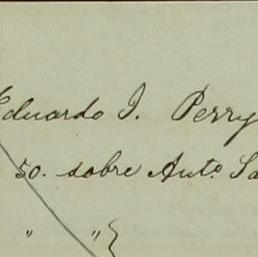 Eduardo I. Perry
50. sobre Anto. Sa
" "